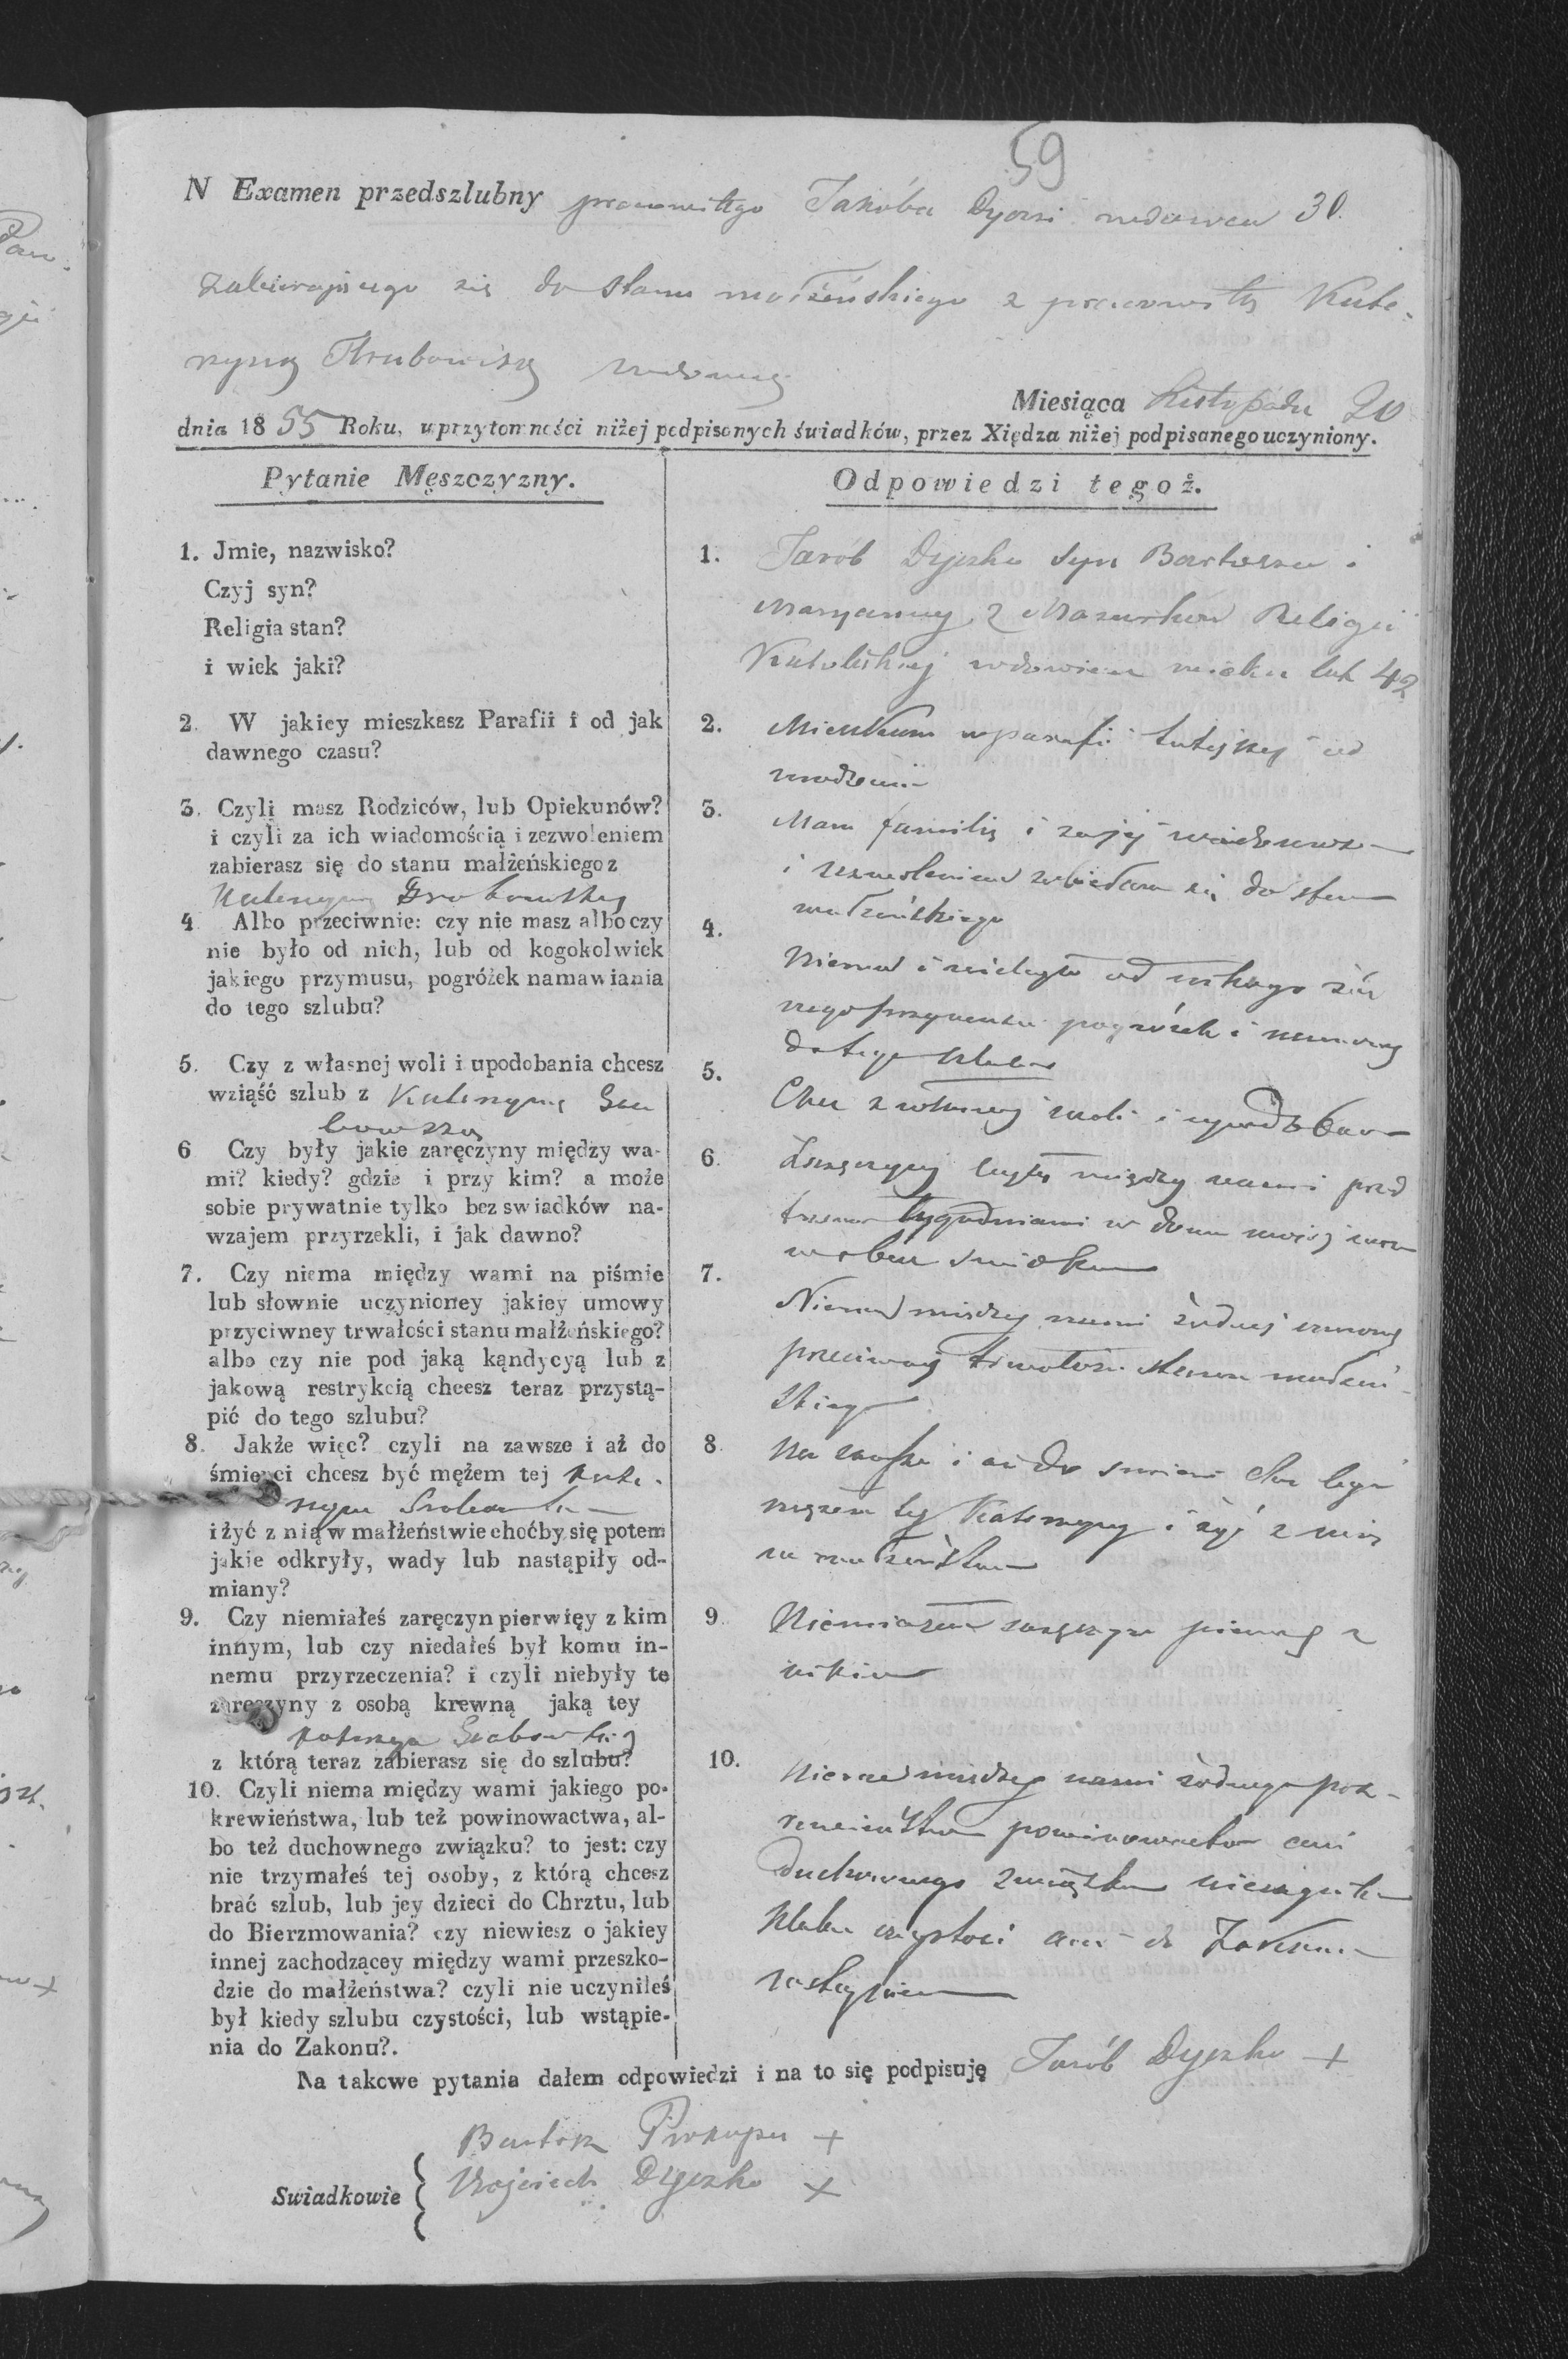 59
N Examen przedszlubny pracowitego Jakóba Dyczki wdowca 30.
zabierającego się do stanu małżeńskiego z pracowitą Kata-
rzyną Grubowską wdową
Miesiąca Listopada 20
dnia 1855 Roku, w przytomności niżej podpisanych świadków, przez Xiędza niżej podpisanego uczyniony.
Pytanie Męszczyzny.
1. Jmie, nazwisko?
Czyj syn?
Religia stan?
i wiek jaki?
2. W jakiey mieszkasz Parafii i od jak
dawnego czasu?
3. Czyli masz Rodziców, lub Opiekunów?
i czyli za ich wiadomością i zezwoleniem
zabierasz się do stanu małżeńskiego z
Katarzyną Grabowską
4 Albo przeciwnie: czy nie masz albo czy
nie było od nich, lub od kogokolwiek
jakiego przymusu, pogróżek namawiania
do tego szlubu?
5. Czy z własnej woli i upodobania chcesz
wziąść szlub z Katarzyną Gra
bowską
6 Czy były jakie zaręczyny między wa-
mi? kiedy? gdzie i przy kim? a może
sobie prywatnie tylko bez swiadków na-
wzajem przyrzekli, i jak dawno?
7. Czy niema między wami na piśmie
lub słownie uczynioney jakiey umowy
przyciwney trwałości stanu małżeńskiego?
albo czy nie pod jaką kąndycyą lub z
jakową restrykcią chcesz teraz przystą-
pić do tego szlubu?
8. Jakże więc? czyli na zawsze i aż do
śmierci chcesz być mężem tej Kata-
rzyny Grabowski
i żyć z nią w małżeństwie choćby się potem
jakie odkryły, wady lub nastąpiły od-
miany?
9. Czy niemiałeś zaręczyn pierwięy z kim
innym, lub czy niedałeś był komu in-
nemu przyrzeczenia? i czyli niebyły te
zaręczyny z osobą krewną jaką tey
Katarzyną Grabowską
z którą teraz zabierasz się do szlubu?
10. Czyli niema między wami jakiego po-
krewieństwa, lub też powinowactwa, al-
bo też duchownego związku? to jest: czy
nie trzymałeś tej osoby, z którą chcesz
brać szlub, lub jey dzieci do Chrztu, lub
do Bierzmowania? czy niewiesz o jakiey
innej zachodzącey między wami przeszko-
dzie do małżeństwa? czyli nie uczyniłeś
był kiedy szlubu czystości, lub wstąpie-
nia do Zakonu?.
Odpowiedzi tegoż.
1. Jakób Dyczko syn Bartosza i
Maryanny z Mazurków Religii
Katolickiej wdowiec wieku lat 42
2. Mieszkam w parafii tutejszej od
urodzenia
3. Mam familię i za jej
i zezwoleniem zabieram się do stanu
małżeńskiego
4. Niema i niebyło od nikogo żad
nego przymusu pogróżek i namowy
do tego szlubu
5. Chcę z własnej woli i upodobania
6. Zaręczyny były między nami przed
trzema tygodniami w domu
w obec świadków
7. Niema między nami żadnej umowy
przeciwnej trwałości stanu małżeń-
skiego
8 Na zawsze i aż do śmierci chcę być
mężem tej Katarzyny i żyć z nią
w małżeństwie
9. Niemiałem zaręczyn pierwej z
nikim
10. Niema między nami żadnego pok-
rewieństwa powinowactwa ani
duchownego związku
szlubu czystości ani do Zakonu
wstąpienia
Na takowe pytania dałem odpowiedzi i na to się podpisuję Jakób Dyczko +
Bartosz Prokopa +
Swiadkowie { Wojciech Dyczko +